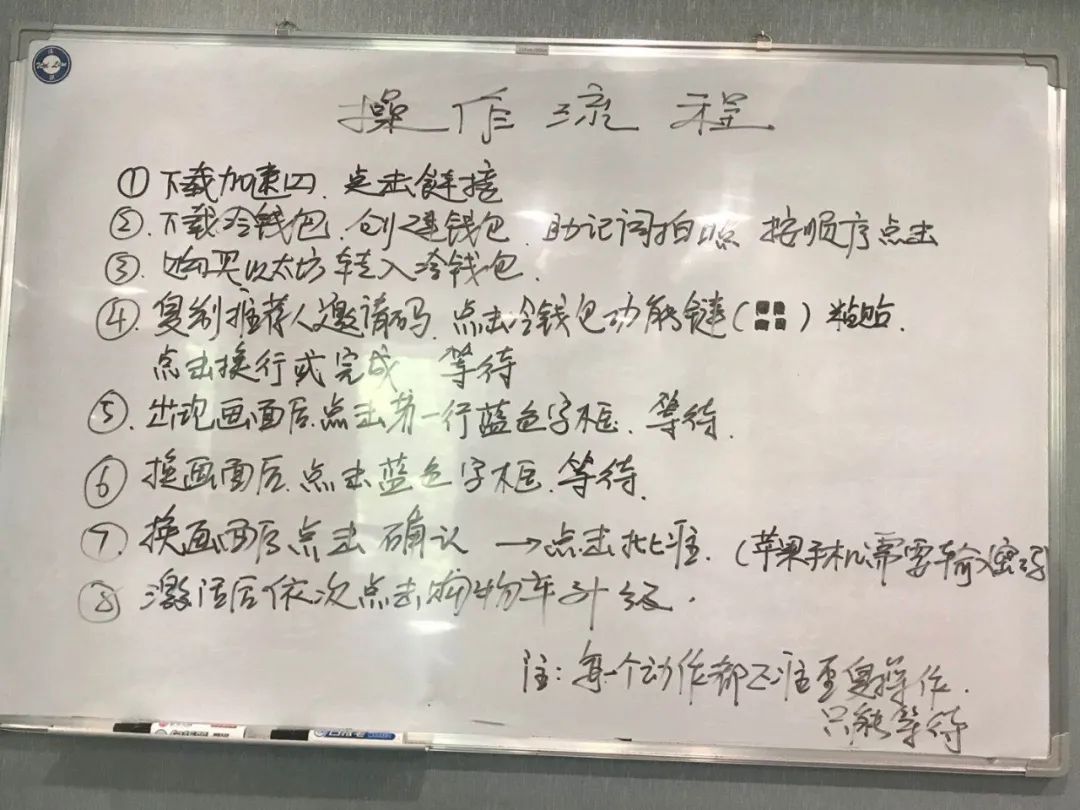 操作流程
① 下载加速四. 点击链接
②. 下载冷钱包. 创建钱包. 助记词拍照 按顺序点击
③. 购买以太坊转入冷钱包.
④. 复制推荐人邀请码. 点击冷钱包功能键( ) 粘贴.
点击换行或完成 等待
⑤. 出现画面后.点击第一行蓝色字框. 等待.
⑥ 换画面后.点击蓝色字框.等待.
⑦. 换画面后点击确认 →点击批准. (苹果手机需要输入密码)
⑧ 激活后依次点击购物车升级.
注: 每个动作都不准重复操作.
只能等待